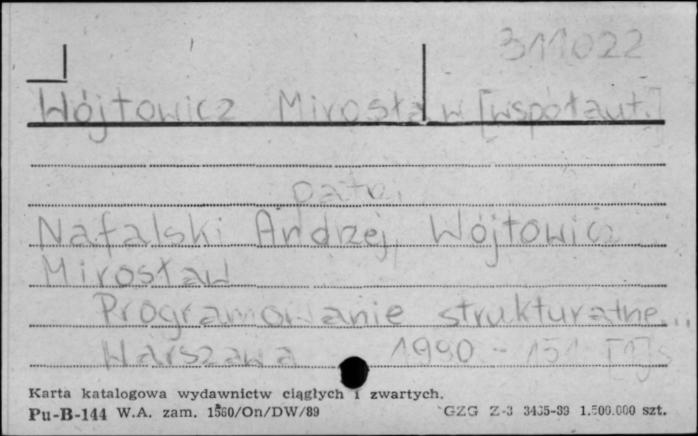 311022
Wójtowicz Mirosław [współaut.]
patrz
Nafalski Andrzej, Wójtowicz
Mirosław
Programowanie strukturalne...
Warszawa 1990 - 151 [1] s
Karta katalogowa wydawnictw ciągłych i zwartych.
Pu-B-144 W.A. zam. 1560/On/DW/89 GZG Z-3 3435-89 1.500.000 szt.